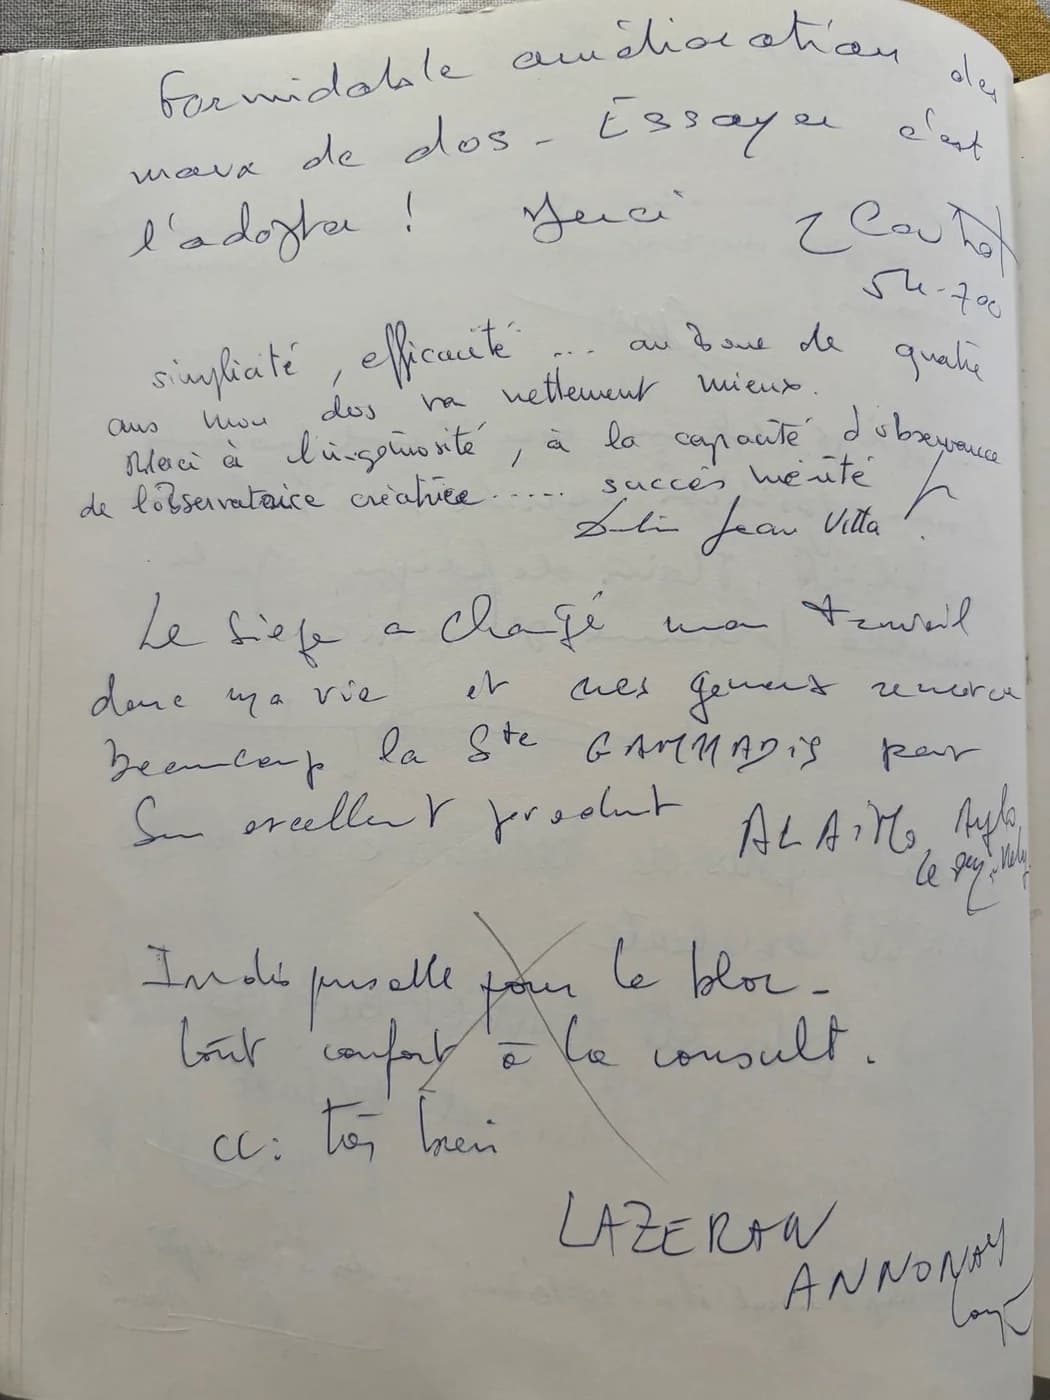 Formidable amélioration des
maux de dos - Essayer c'est
l'adopter ! Merci
54-700
simplicité, efficacité ... au bout de quatre
ans mon dos va nettement mieux.
Merci à l'ingéniosité, à la capacité d'observance
de l'observatrice créatrice ..... succès mérité
Jean Vitta
Le siège a changé mon travail
donc ma vie et mes genoux remercie
beaucoup la Sté GAMMADIS pour
Son excellent produit
ALAIMO
Indispensable pour le bloc -
tout confort à la consult.
CC: très bien
LAZERAN
ANNONAY